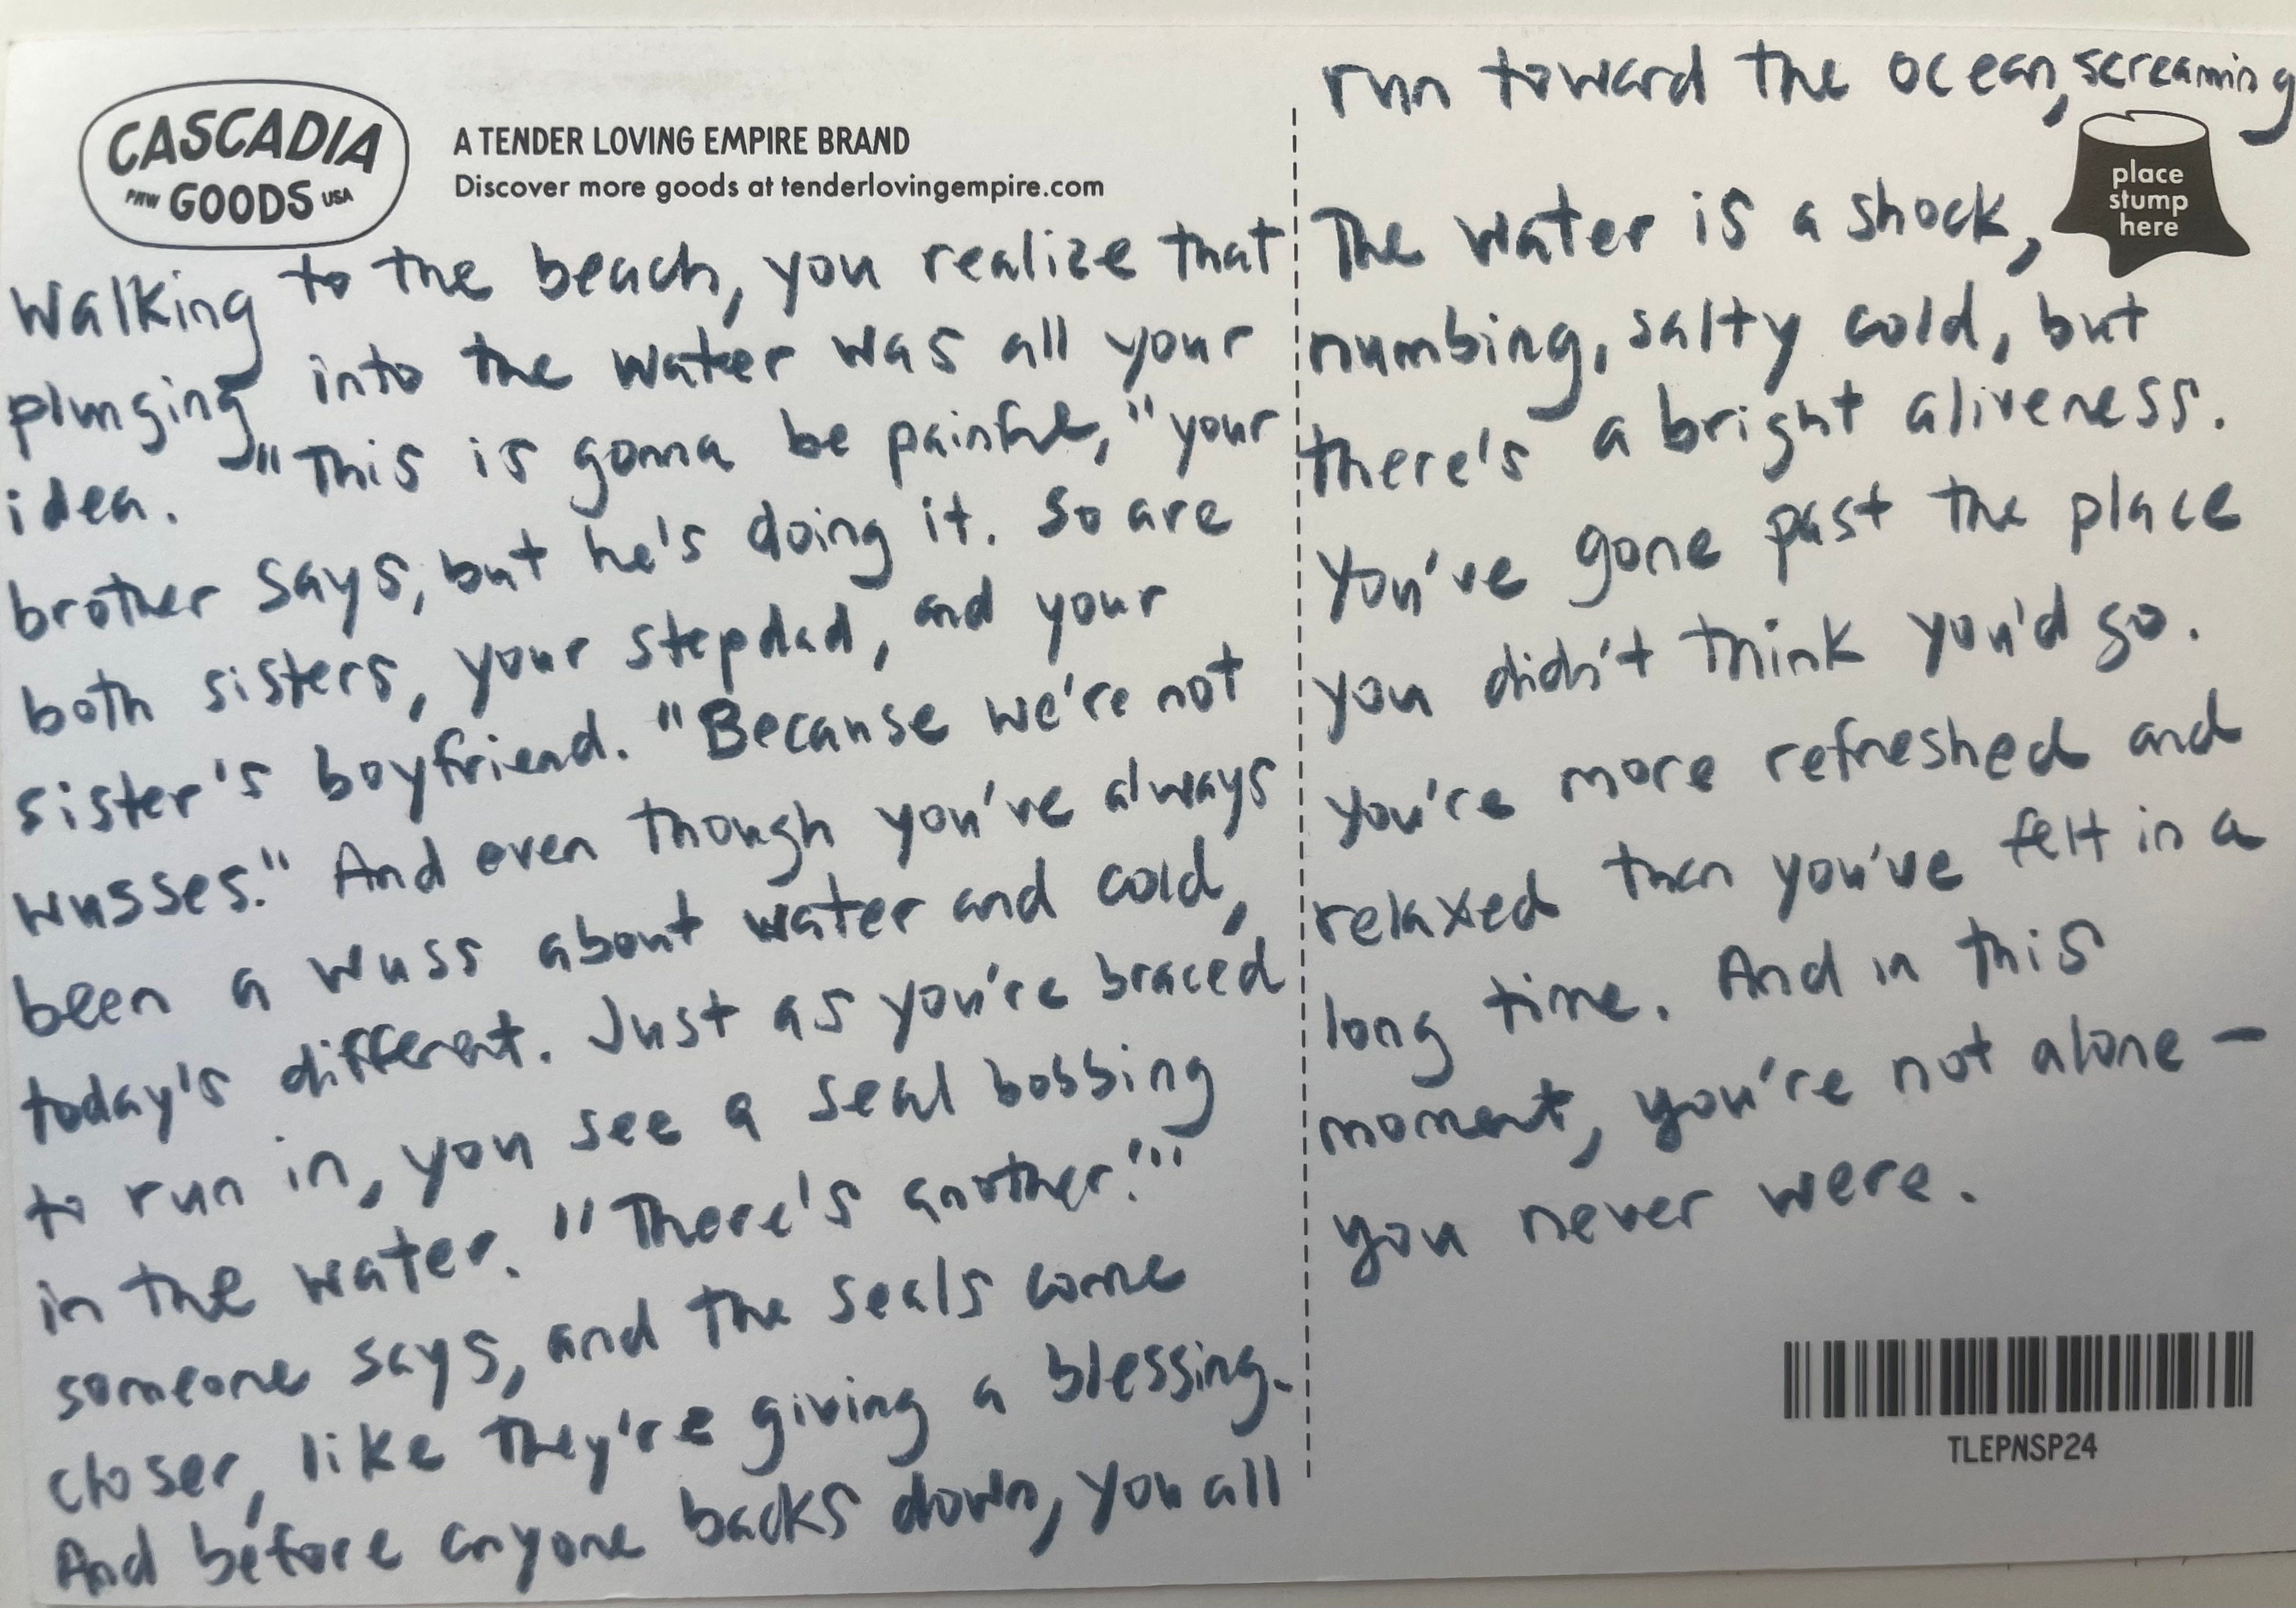 CASCADIA
PNW GOODS USA
A TENDER LOVING EMPIRE BRAND
Discover more goods at tenderlovingempire.com
Walking to the beach, you realize that
plunging into the water was all your
idea. "This is gonna be painful," your
brother says, but he's doing it. So are
both sisters, your stepdad, and your
sister's boyfriend. "Because we're not
wusses." And even though you've always
been a wuss about water and cold,
today's different. Just as you're braced
to run in, you see a seal bobbing
in the water. "There's another!"
someone says, and the seals come
closer, like they're giving a blessing.
And before anyone backs down, you all
run toward the ocean, screaming
place
stump
here
The water is a shock,
numbing, salty cold, but
there's a bright aliveness.
You've gone past the place
you didn't think you'd go.
You're more refreshed and
relaxed than you've felt in a
long time. And in this
moment, you're not alone –
you never were.
TLEPNSP24